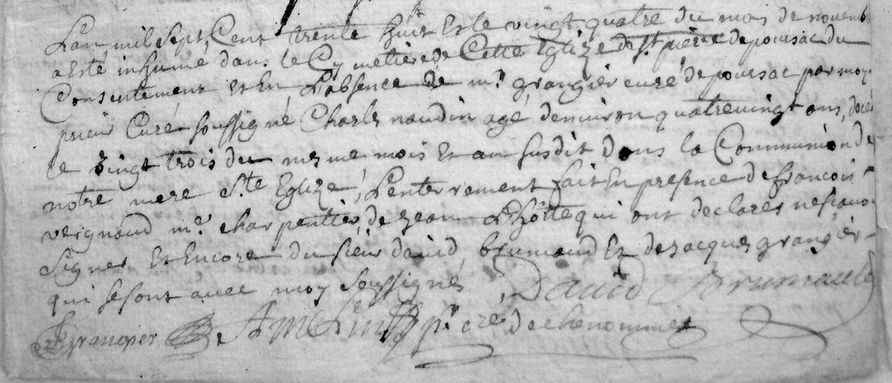 L'an mil sept Cent trente huit Et le vingt quatre du mois de novemb
a Esté inhumé dans le Cymetiere de Cette Eglize de St pierre de poursac du
Consentement et En L'absence de mr grangier curé de poursac par moy
prieur Curé soussigné Charles naudin agé d'environ quatre vingt ans, decedé
le vingt trois du mesme mois Et an susdit dans la Communion de
notre mere Ste Eglize, L'enterrement fait En presence de francois
veignaud me charpentier, de Jean L'hôtte qui ont declarés ne scavoir
signer Et Encore du sieur david brumaud Et de Jacques grangier
qui se sont avec moy soussignés David Brumauld
J grangier pr curé de chenommet